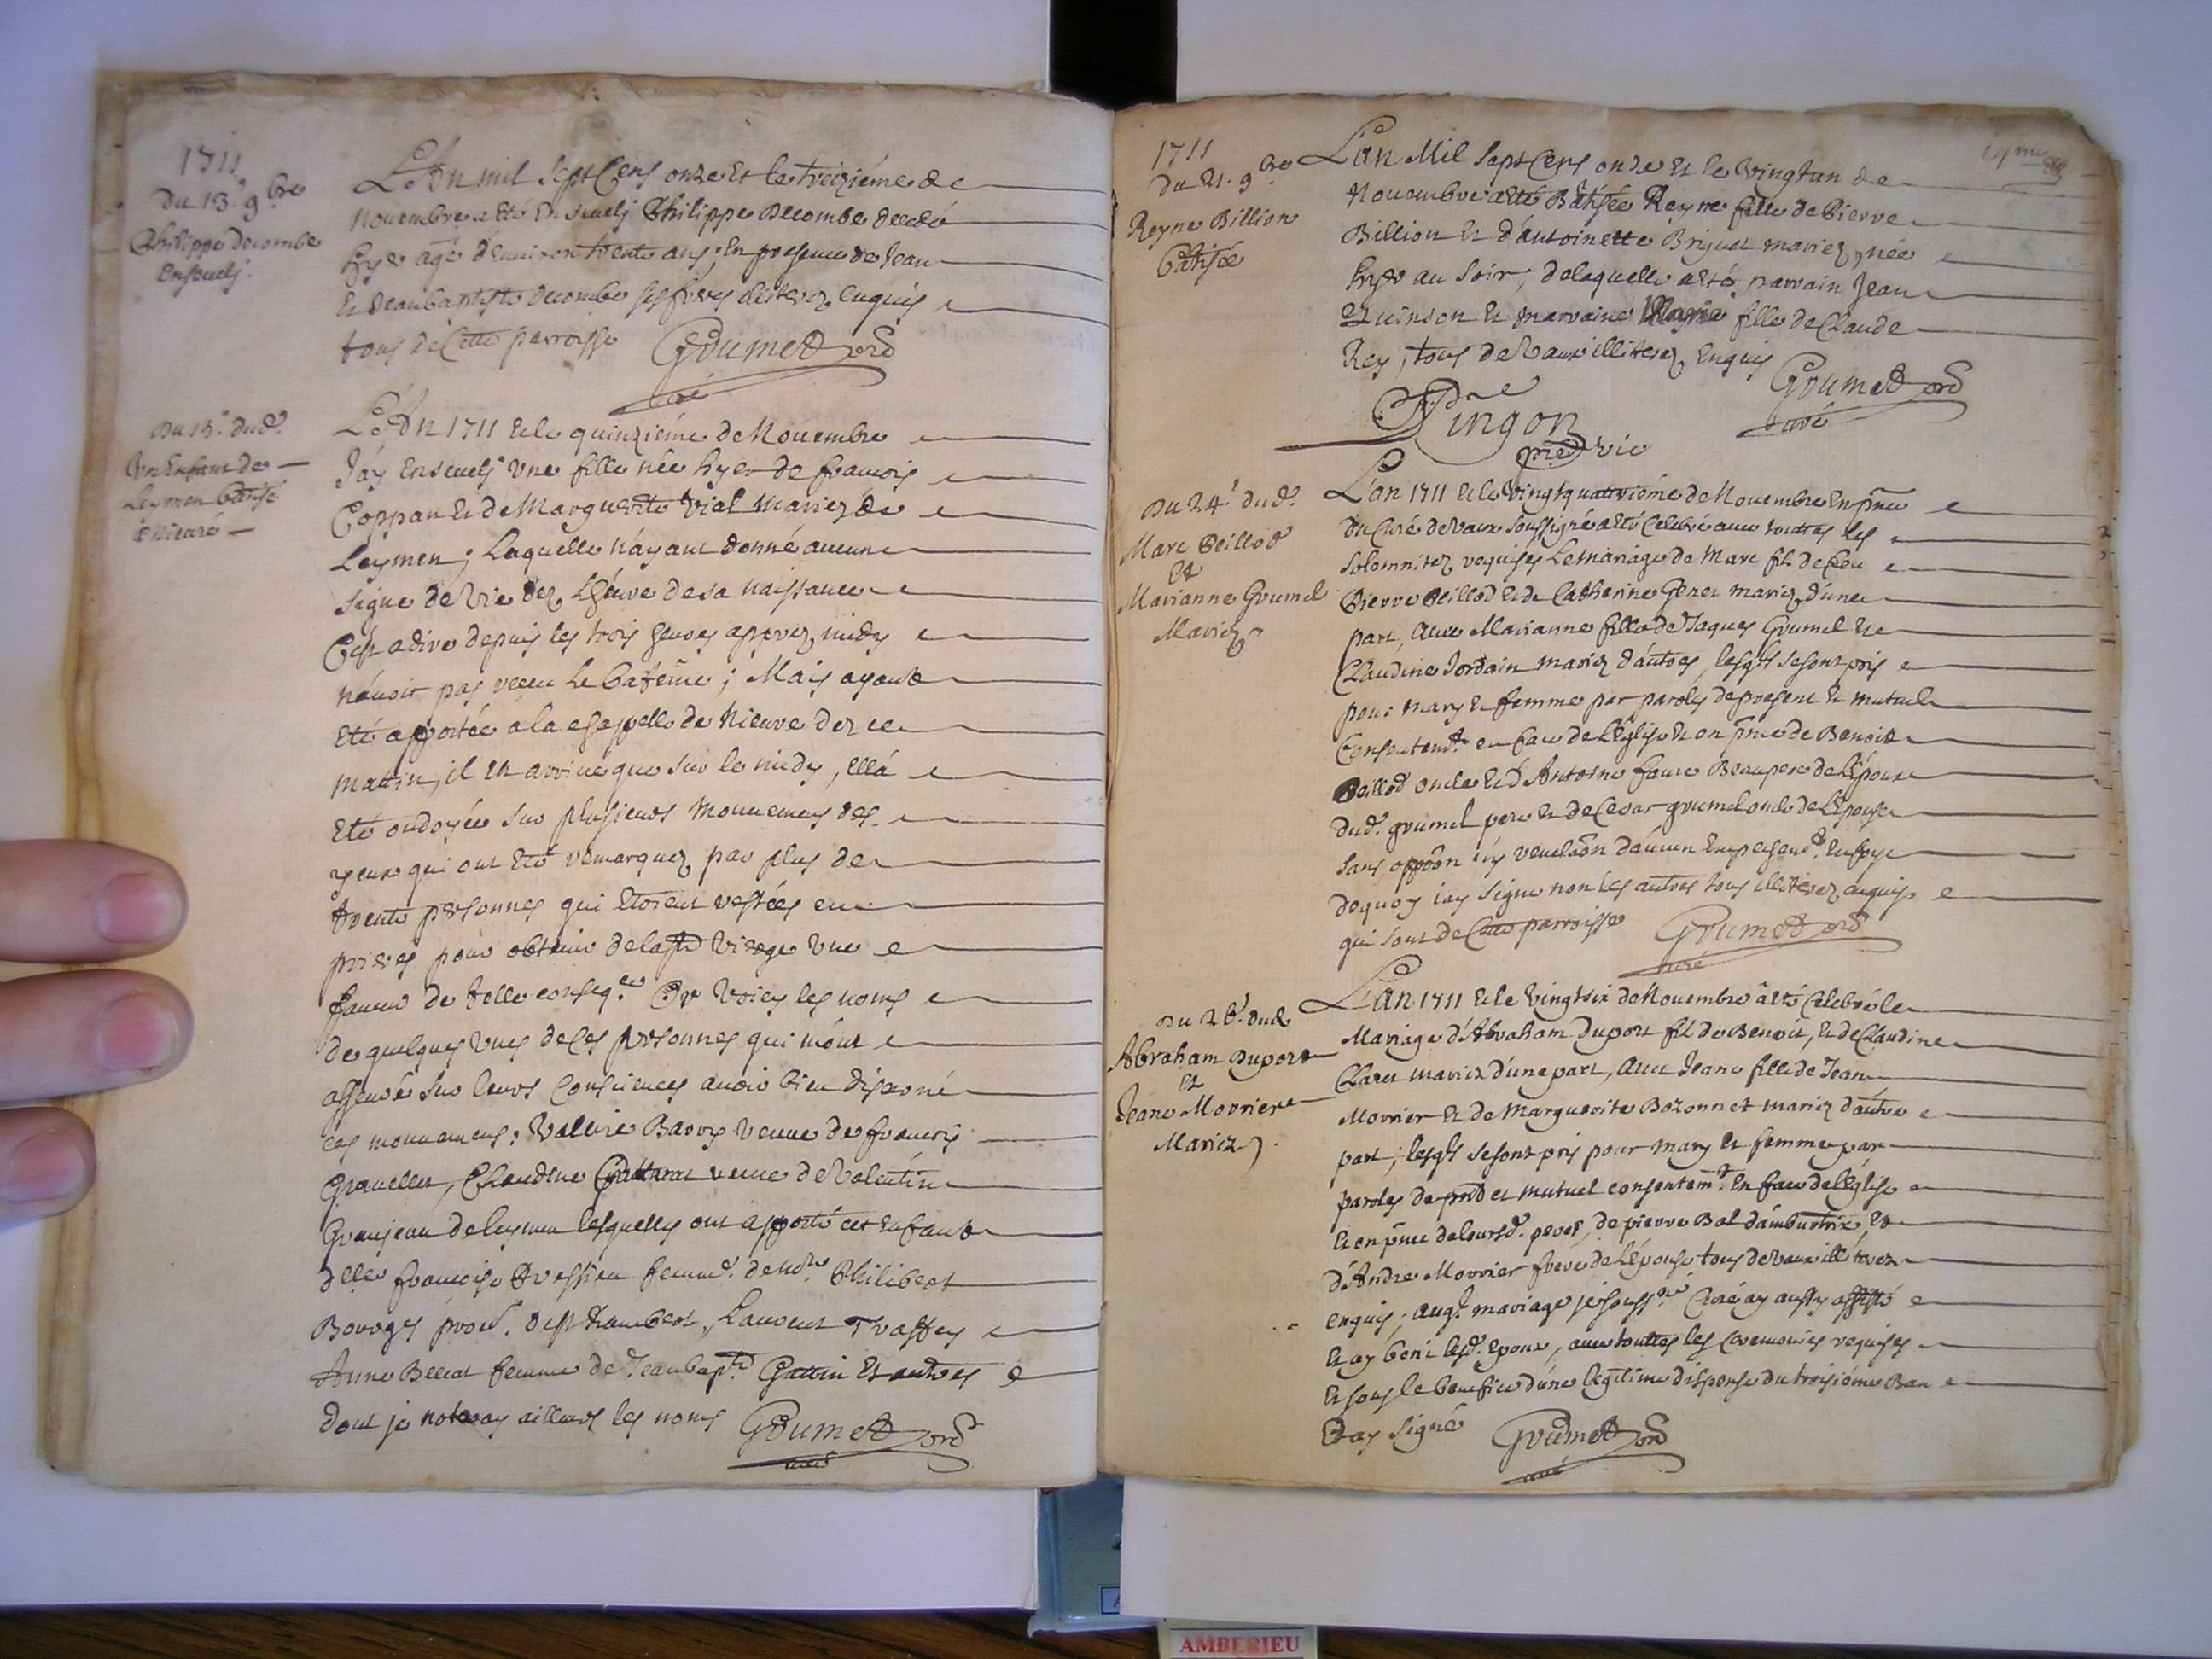 1711
Du 13.e 9bre
Philippe Decombe
Enseuely.
L'An mil Sept Cens onze Et le treiziéme de
Nouembre a été Enseuely Philippe Decombe decedé
hyer agé d'enuiron trente ans; En presence de Jean
Et Jeanbaptiste Decombe ses freres illiterez enquis
tous de Cette parroisse Grumet
curé
Du 15.e dud.
Vn Enfant de
Leymen Batisé
à Nieure
L'An 1711 Et le quinziéme de Nouembre
J'ay Enseuely Vne fille née hyer de francois
Coppan Et de Marguerite Vial Mariez de
Leymen; Laquelle n'ayant donné aucun
Signe de Vie dez L'heure de sa naissance
C'est a dire depuis les trois heures apprez midy
n'auoit pas receu Le batéme; Mais ayant
Eté apportée a la chappelle de Nieure dez ce
mattin, il Est arriué que sur le midy, Ell'a
Eté ondoyée sur plusieurs Mouuemens des
yeux qui ont Eté remarquez par plus de
trente personnes qui Etoient restées en
prieres pour obtenir de la Ste Vierge Vne
faueur de telle conseq.ce Or Voicy les noms
de quelques Vnes de Ces personnes qui m'ont
asseuré Sur leurs Consciences auoir bien discerné
ces mouuemens; Valleire Barry Veuue de francois
Grauellet, Claudine veuue de Valentin
Granjean de leymen lesquelles ont apporté cet Enfant
delle françoise femme de Me Philibert
Bourget St Rambert, Laurent Traffey
Anne Bellet femme de Jeanbapt.e Gattin Et autres
dont je noteray ailleurs les noms Grumet
curé
1711
Du 21. 9bre
Reyne Billion
Batisée
L'an Mil Sept Cens onze Et le Vingtun de
Nouembre a été Batisée Reyne fille de Pierre
Billion Et d'Antoinette Brijuet mariez, née
hyer au Soir; de laquelle a été parrain Jean
Quinson Et marraine Marie fille de Claude
Rey, tous de Vaux illiterez Enquis Grumet
curé
Pingon
L'an 1711 Et le Vingtquatriéme de Nouembre En pñce
du Curé de Vaux soussigné a été Celebré auec touttes les
Solemnitez requises Le mariage de Marc fils de feu
Pierre Beillod Et de Catherine Genet mariez d'une
part, Auec Marianne fille de Jaques Grumel Et
Claudine Jordain mariez d'autre, lesqls se sont pris
pour Mary Et femme par paroles de present Et mutuel
Consentemt en face de L'église Et en pñce de Benoit
Beillod oncle Et d'Antoine faure Beaupere de L'époux
dud. grumel pere Et de Cesar grumel oncle de L'épouse
Sans oppõn ny reuelãon d'aucun Empeschemt. En foy
dequoy j'ay Signe non les autres tous illiterez enquis
qui sont de Cette parroisse Grumet
curé
Du 24.e dud.
Marc Beillod
Et
Marianne Grumel
Mariez
Du 26.e dud.
Abraham Duport
Et
Jeane Morriere
Mariez
L'an 1711 Et le Vingtsix de Nouembre a été Celebré le
Mariage d'Abraham Duport fils de Benoit, Et de Claudine
Claret mariez d'une part, Auec Jeane fille de Jean
Morrier Et de Marguerite Bozonnet mariez d'autre
part; lesqls se sont pris pour mary Et femme par
paroles de pñt et mutuel consentemt. En face de L'église
Et en pñce de leursd. peres, de pierre Bal d'ambutrix, Et
d'Andre Morrier frere de L'épouse tous de Vaux illiterez
enquis; auql mariage je soussné Curé ay aussy assisté
Et ay béni lesd. Epoux, auec touttes les Ceremonies requises
Et sous le benefice d'une légitime dispense du troisiéme Ban
Et ay Signé Grumet
curé
AMBERIEU